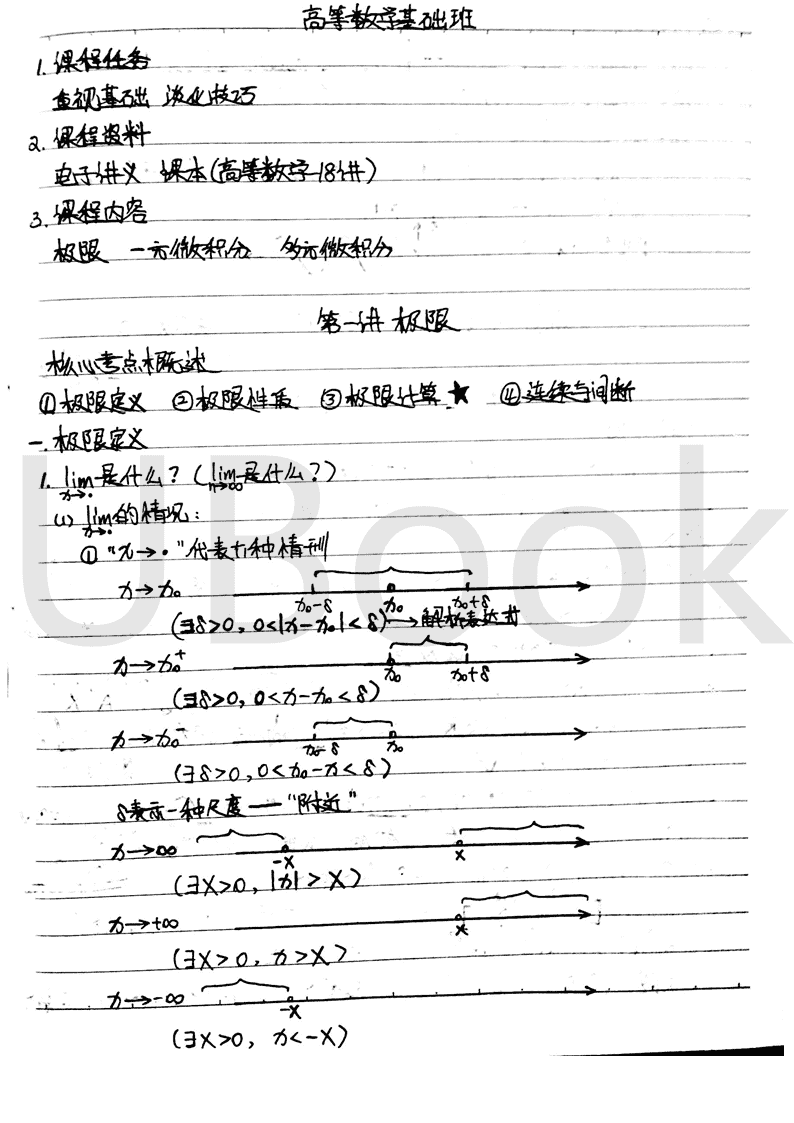 高等数学基础班
1. 课程任务
重视基础 淡化技巧
2. 课程资料
电子讲义 课本(高等数学18讲)
3. 课程内容
极限 一元微积分 多元微积分
第一讲 极限
核心考点概述
①极限定义 ②极限性质 ③极限计算★ ④连续与间断
一. 极限定义
1. lim x→· 是什么?(lim n→∞ 是什么?)
(1) lim x→· 的情况:
① "x→·"代表六种情形
x→x₀ x₀-δ x₀ x₀+δ
(∃δ>0, 0<|x-x₀|<δ)→解析表达式
x→x₀⁺ x₀ x₀+δ
(∃δ>0, 0<x-x₀<δ)
x→x₀⁻ x₀-δ x₀
(∃δ>0, 0<x₀-x<δ)
δ表示一种尺度——"附近"
x→∞ -X X
(∃X>0, |x|>X)
x→+∞ X
(∃X>0, x>X)
x→-∞ -X
(∃X>0, x<-X)
UBook